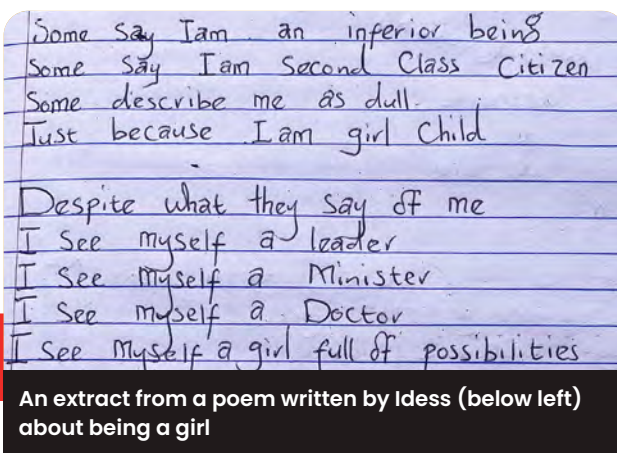 Some say Iam an inferior being
Some say Iam Second Class Citizen
Some describe me as dull.
Just because Iam girl Child
Despite what they say of me
I See myself a leader
I See myself a Minister
I See myself a Doctor
I See myself a girl full of possibilities
An extract from a poem written by Idess (below left)
about being a girl